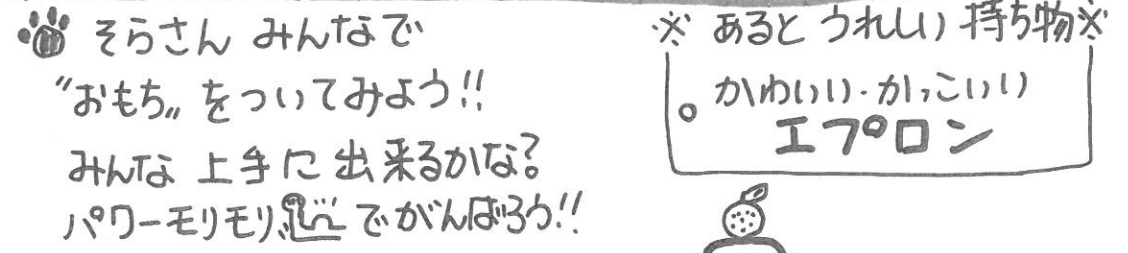 そらさん みんなで
“おもち„ をついてみよう!!
みんな 上手に出来るかな?
パワーモリモリ でがんばろう!!
※ あると うれしい 持ち物※
。かわいい・かっこいい
エプロン